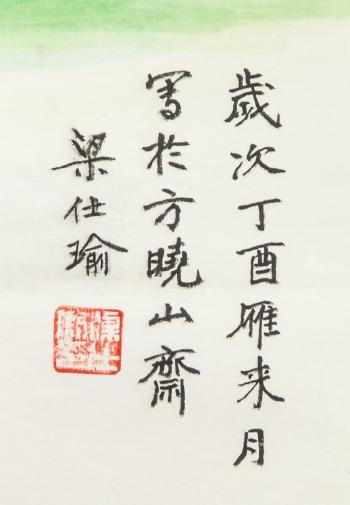 歲次丁酉雁来月
写於方曉山齋
梁仕瑜